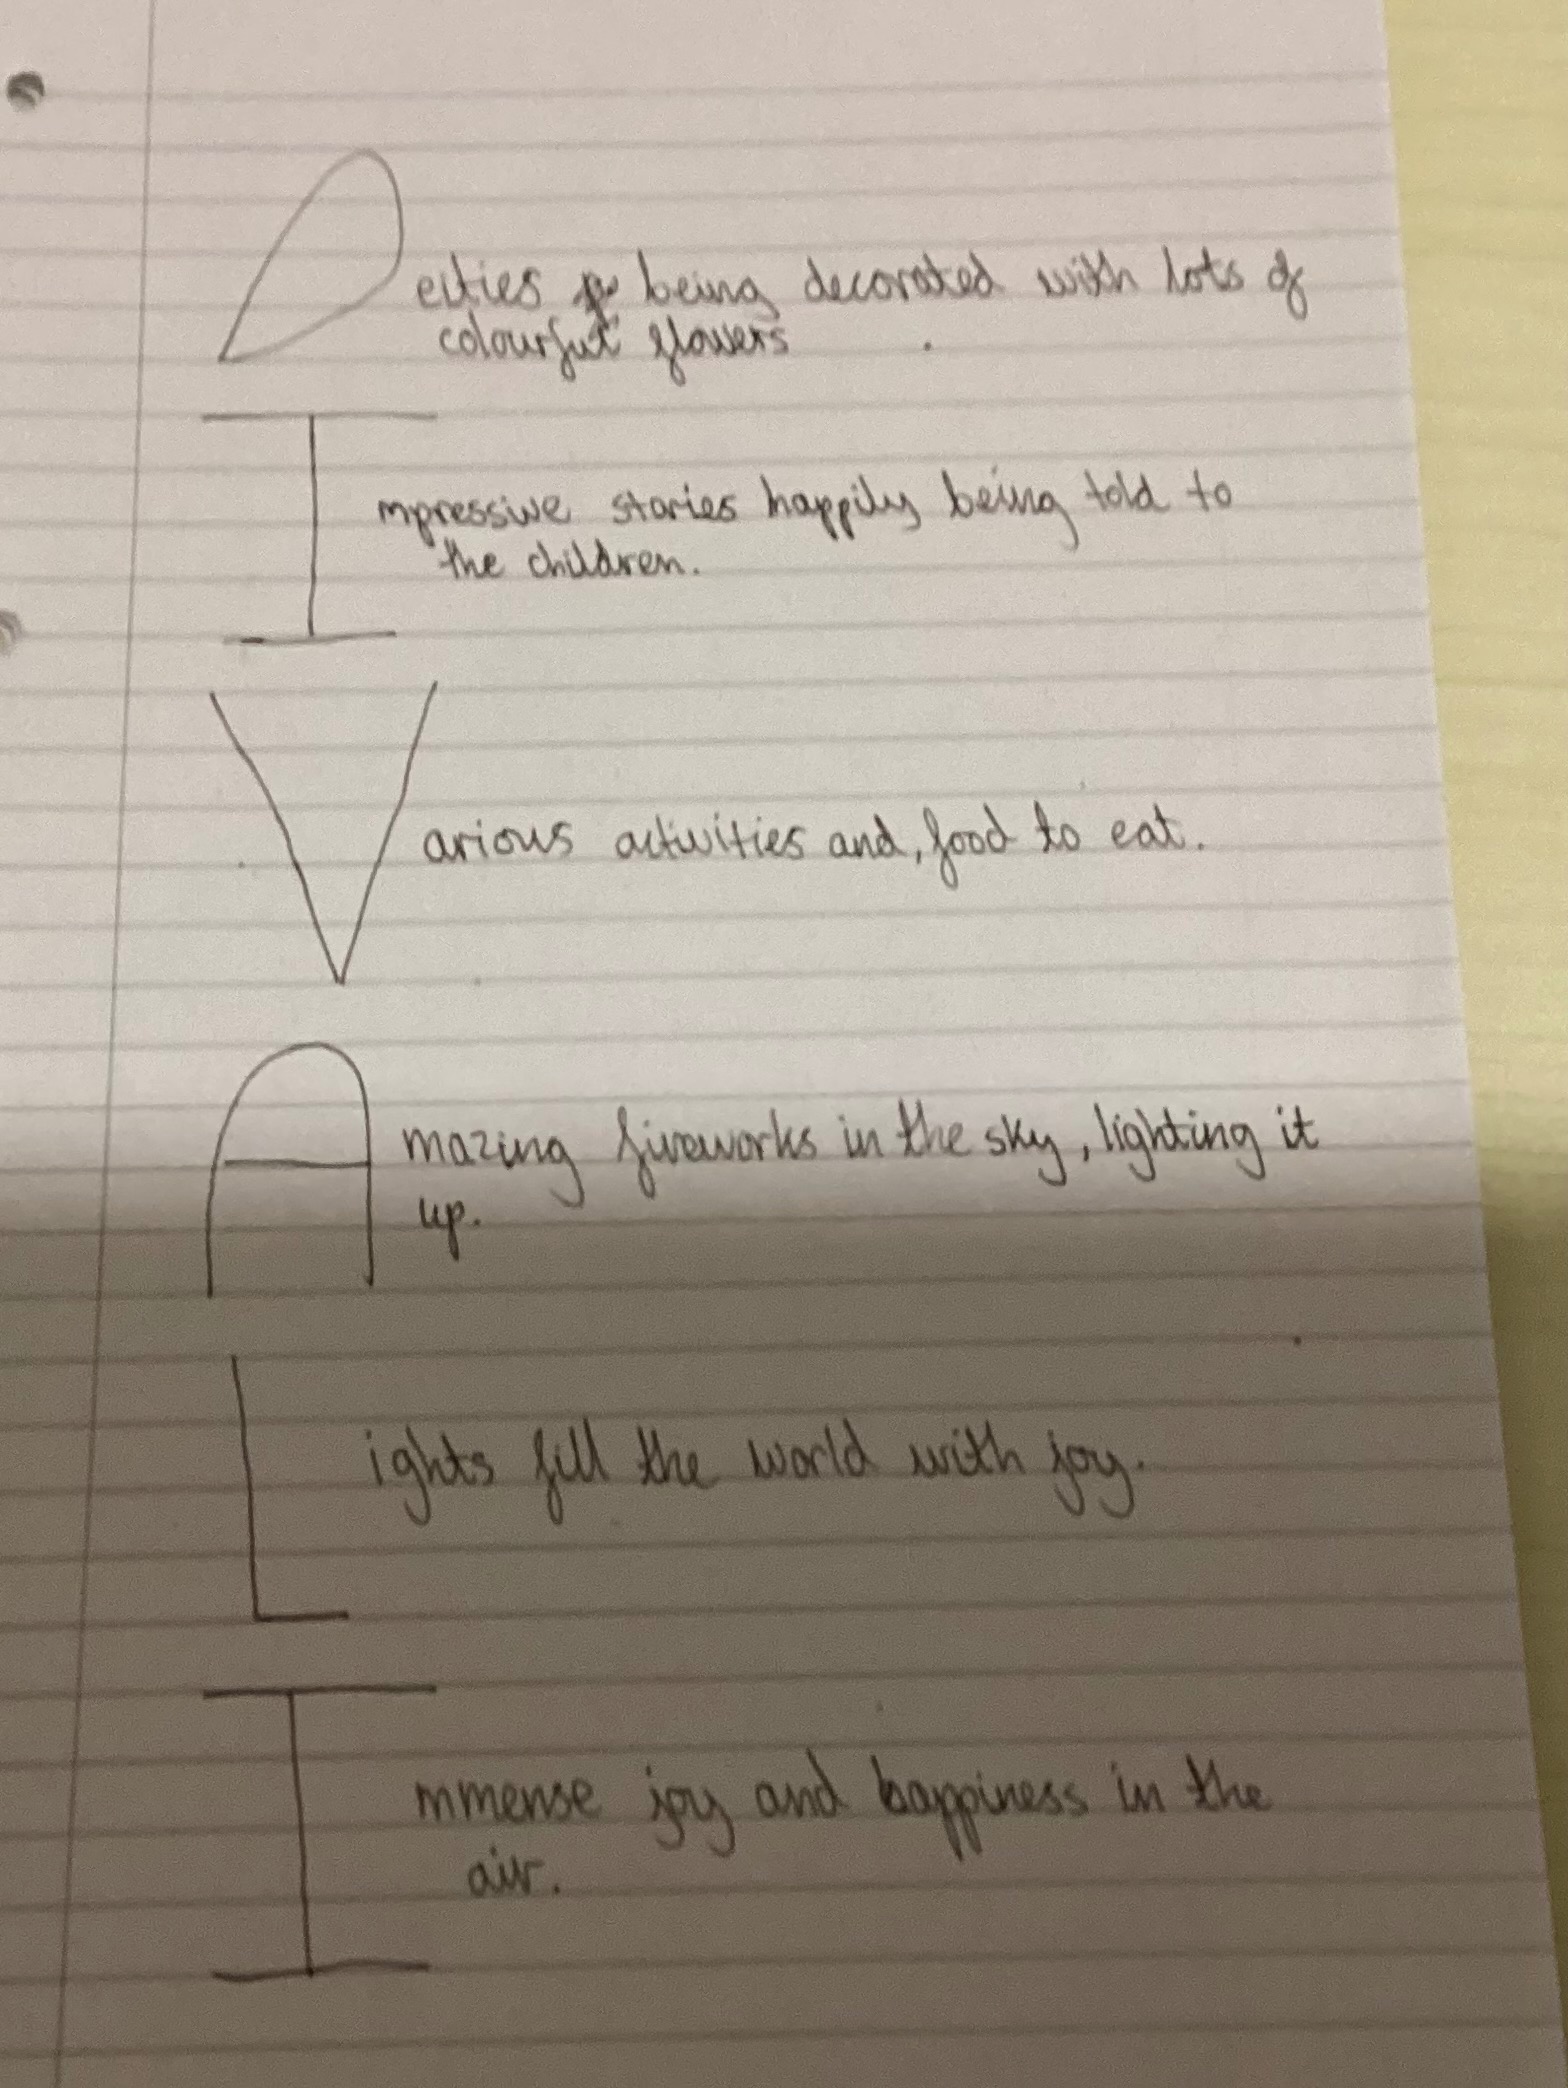 Deities being decorated with lots of
colourful flowers
Impressive stories happily being told to
the children.
Various activities and, food to eat.
Amazing fireworks in the sky, lighting it
up.
Lights fill the world with joy.
Immense joy and happiness in the
air.